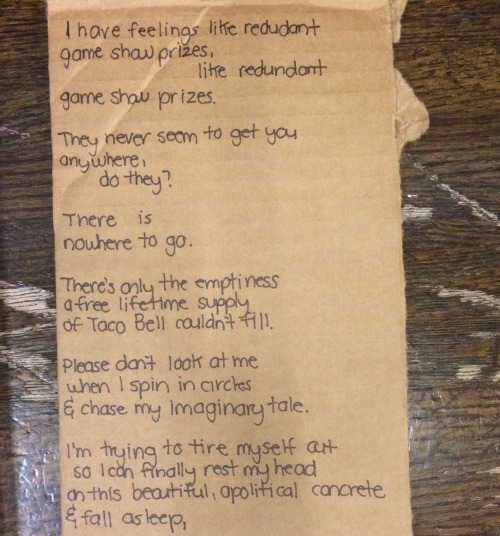 I have feelings like redudant
game show prizes,
like redundant
game show prizes.
They never seem to get you
anywhere,
do they?
There is
nowhere to go.
There's only the emptiness
a free lifetime supply
of Taco Bell couldn't fill.
Please don't look at me
when I spin in circles
& chase my imaginary tale.
I'm trying to tire myself out
so I can finally rest my head
on this beautiful, apolitical concrete
& fall asleep,